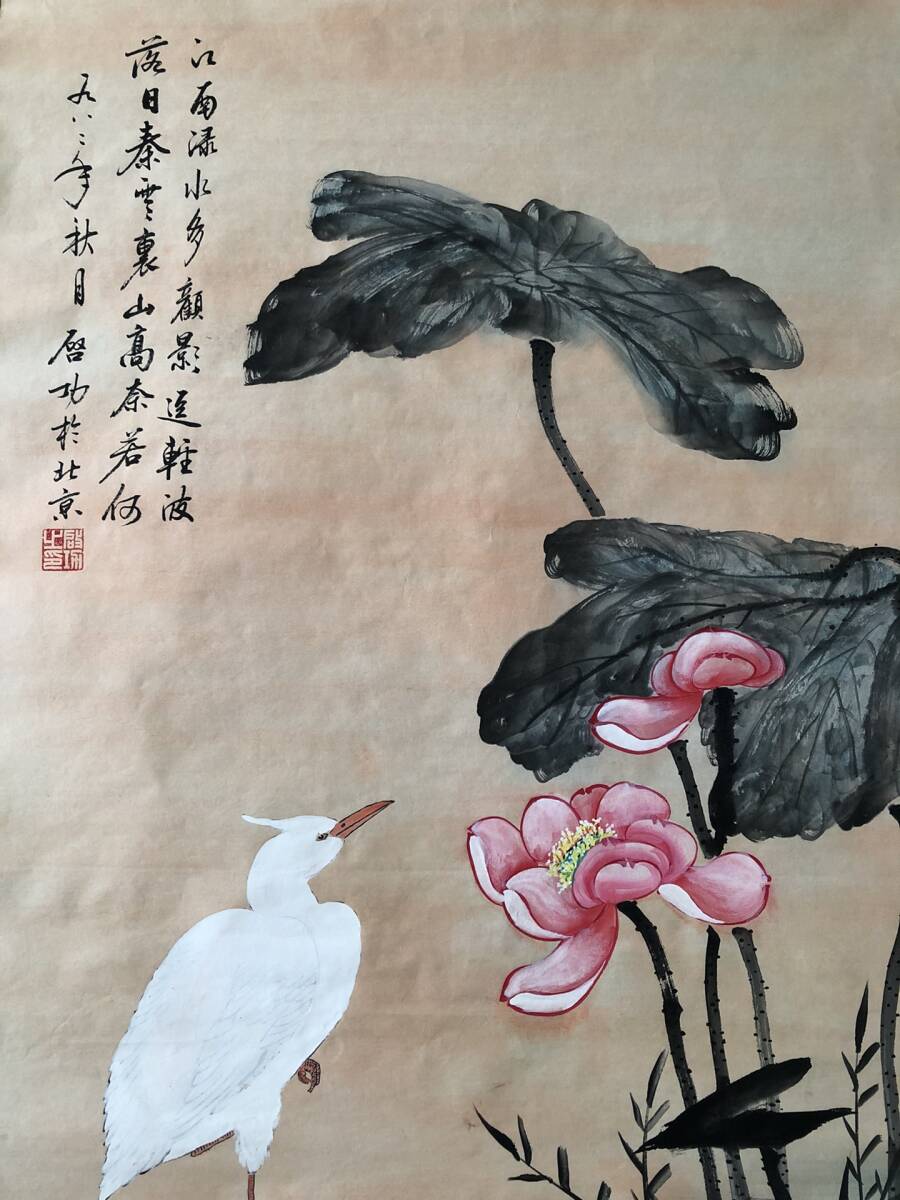 江南渌水多顧影逗輕波
落日秦雲裏山高奈若何
一九八二年秋月啓功於北京
啟功之印